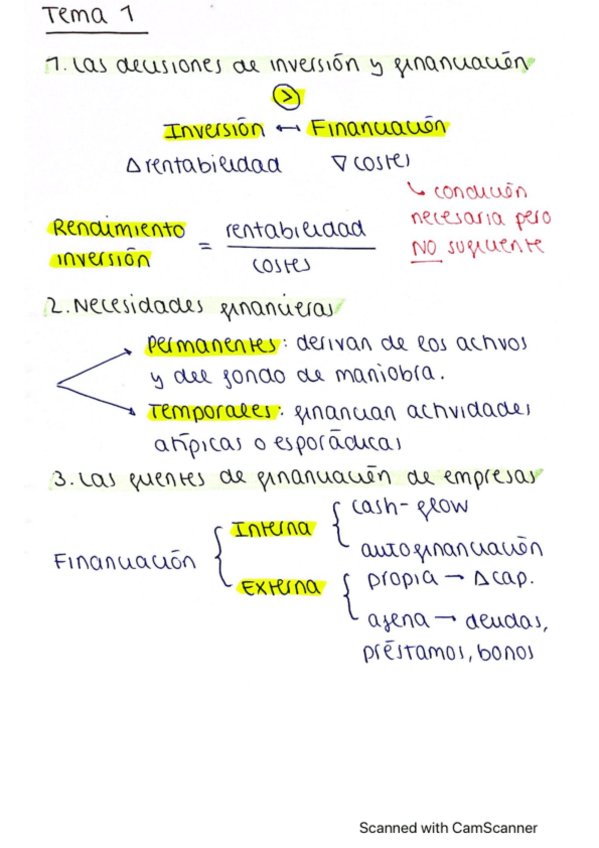 Tema 1
1. Las decisiones de inversión y financiación
>
Inversión ↔ Financiación
Δ rentabilidad ∇ costes
↳ condición
necesaria pero
NO suficiente
Rendimiento inversión = rentabilidad / costes
2. Necesidades financieras
Permanentes: derivan de los activos
y del fondo de maniobra.
Temporales: financian actividades
atípicas o esporádicas
3. Las fuentes de financiación de empresas
Financiación { Interna { cash-flow
autofinanciación
Externa { propia → Δ cap.
ajena → deudas,
préstamos, bonos
Scanned with CamScanner